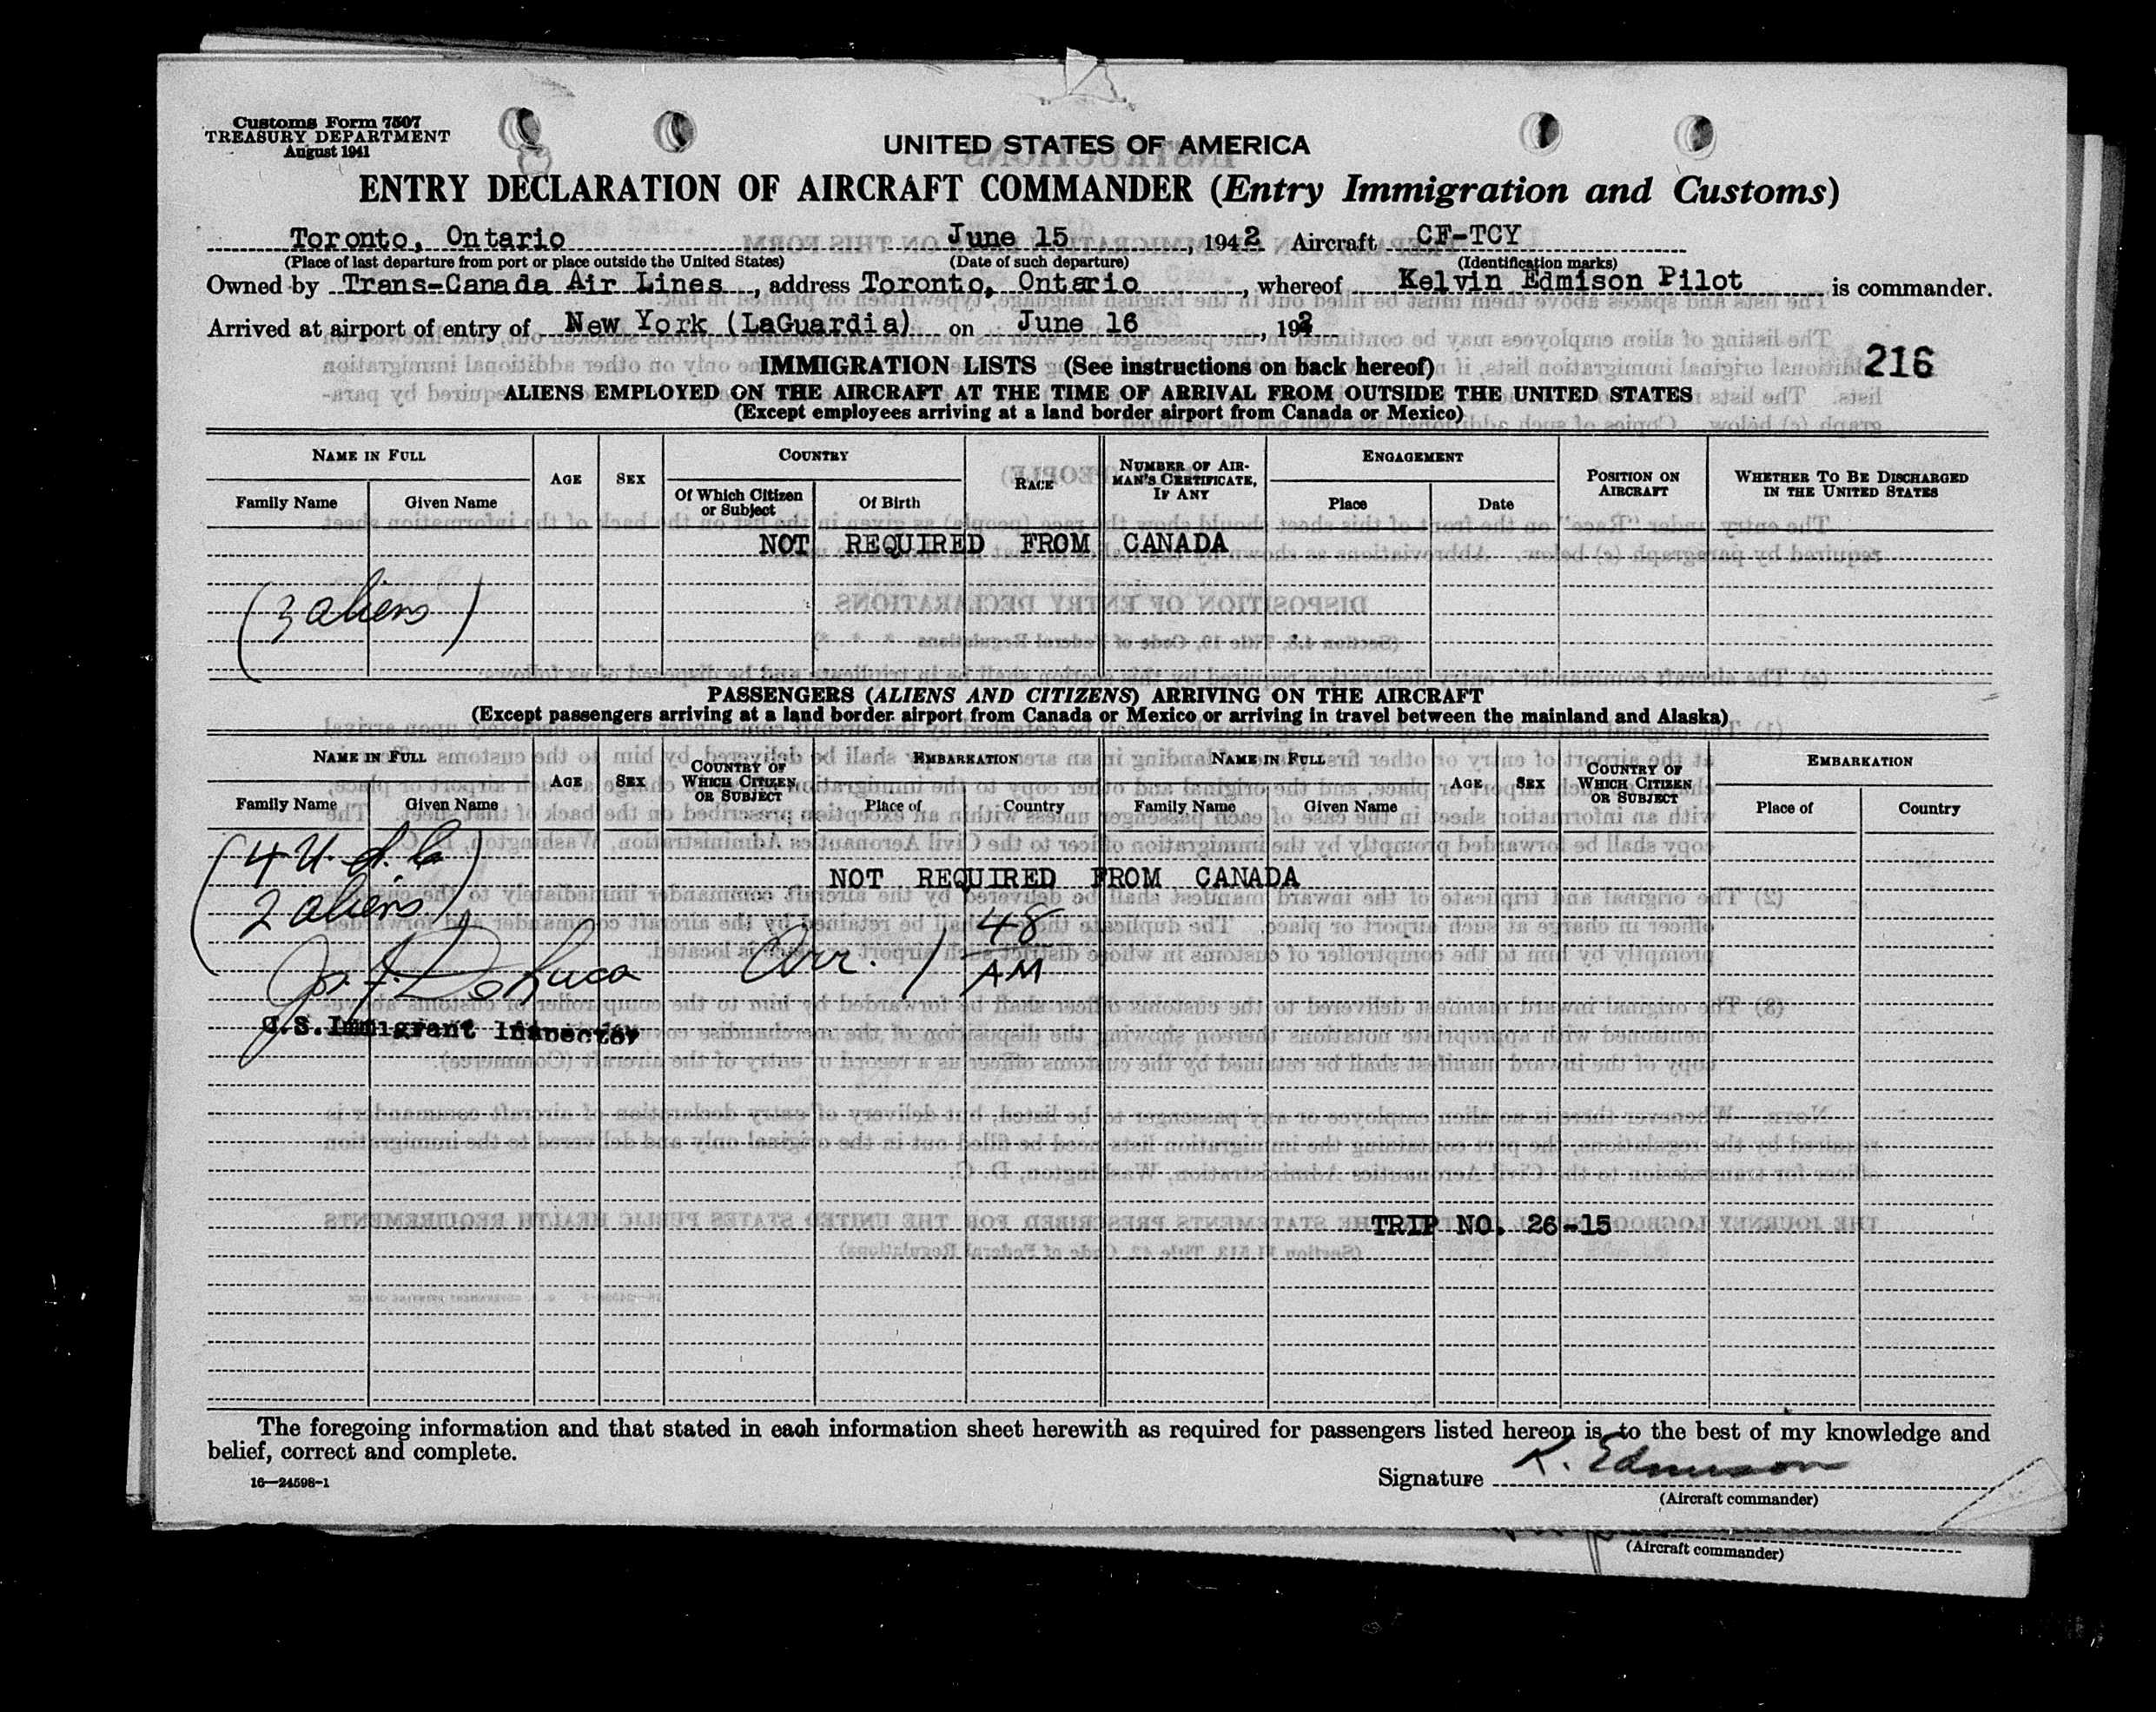 Customs Form 7507
TREASURY DEPARTMENT
August 1941
UNITED STATES OF AMERICA
ENTRY DECLARATION OF AIRCRAFT COMMANDER (Entry Immigration and Customs)
Toronto, Ontario June 15, 1942 Aircraft CF-TCY
(Place of last departure from port or place outside the United States) (Date of such departure) (Identification marks)
Owned by Trans-Canada Air Lines, address Toronto, Ontario, whereof Kelvin Edmison Pilot is commander.
Arrived at airport of entry of New York (LaGuardia) on June 16, 1942
IMMIGRATION LISTS (See instructions on back hereof) 216
ALIENS EMPLOYED ON THE AIRCRAFT AT THE TIME OF ARRIVAL FROM OUTSIDE THE UNITED STATES
(Except employees arriving at a land border airport from Canada or Mexico)
NAME IN FULL AGE SEX COUNTRY RACE NUMBER OF AIRMAN'S CERTIFICATE, IF ANY ENGAGEMENT POSITION ON AIRCRAFT WHETHER TO BE DISCHARGED IN THE UNITED STATES
Family Name Given Name Of Which Citizen or Subject Of Birth Place Date
NOT REQUIRED FROM CANADA
(3 aliens)
PASSENGERS (ALIENS AND CITIZENS) ARRIVING ON THE AIRCRAFT
(Except passengers arriving at a land border airport from Canada or Mexico or arriving in travel between the mainland and Alaska)
NAME IN FULL AGE SEX COUNTRY OF WHICH CITIZEN OR SUBJECT EMBARKATION NAME IN FULL AGE SEX COUNTRY OF WHICH CITIZEN OR SUBJECT EMBARKATION
Family Name Given Name Place of Country Family Name Given Name Place of Country
(4 U.S.C.
NOT REQUIRED FROM CANADA
2 aliens)
Jos. J. DeLuca Arr. 1 48 AM
U.S. Immigrant Inspector
TRIP NO. 26-15
The foregoing information and that stated in each information sheet herewith as required for passengers listed hereon is, to the best of my knowledge and
belief, correct and complete.
16—24598-1
Signature K. Edmison
(Aircraft commander)
(Aircraft commander)